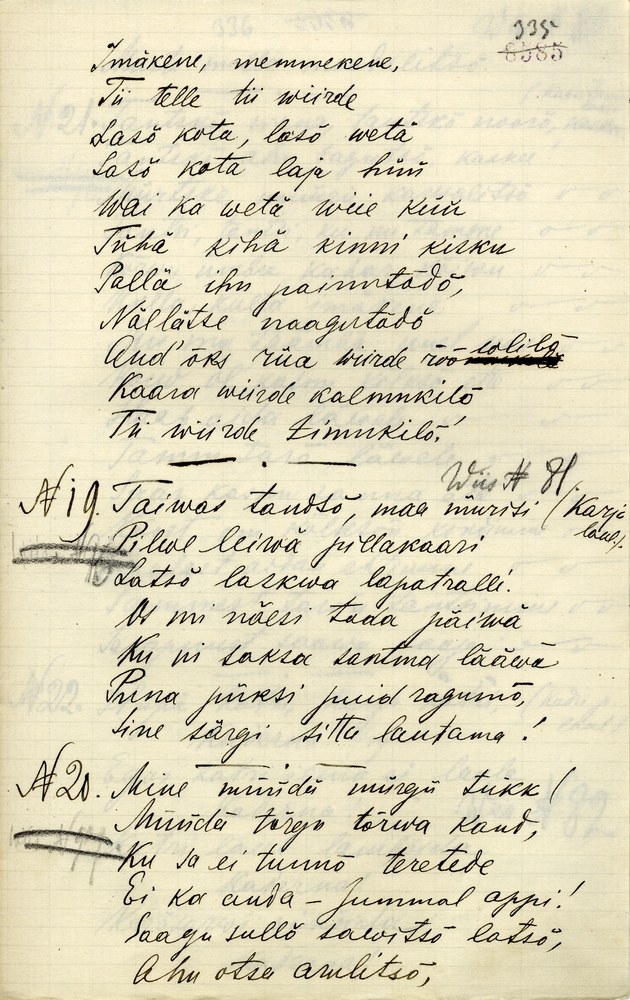 335
8585
Imäkene, memmekene,
Tii telle tii wiirde
Lasõ kota, lasõ wetä
Lasõ kota laja hüü
Wai ka wetä wiie küü
Tühä kihä kinni kisku
Pallä ihu painutadõ,
Nällätse naagutadõ
And' õks rüa wiirde
Kaara wiirde kalmukilõ
Tii wiirde timukilõ!
Wiis № 81.
№ 19. Taiwas tandsõ, maa mürisi (Karja
laul).
Pilwe leiwä pillakaari
Latsõ laskwa lapatralli.
Os mi nõesi toda päiwä
Ku ni saksa santma lääwä
Puna püksi puid ragumõ,
Sine särgi sitta lautama!
№ 20. Mine müüdä mürgü tükk!
Müüdä tõrgu tõrwa kand,
Ku sa ei tunnõ teretede
Ei ka anda – Jummal appi!
Saagu sullõ sawitsõ latsõ,
Ahu otsa arulitsõ,